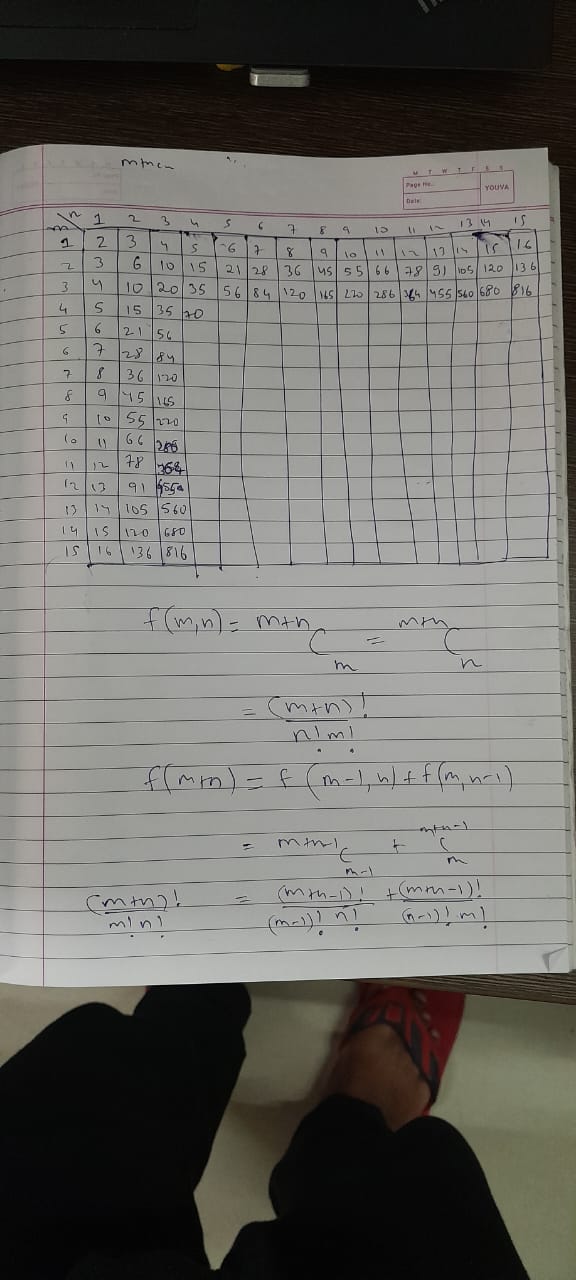 m+nCn
M T W T F S S
Page No.:
Date:
YOUVA
m\n 1 2 3 4 5 6 7 8 9 10 11 12 13 14 15
1 2 3 4 5 6 7 8 9 10 11 12 13 14 15 16
2 3 6 10 15 21 28 36 45 55 66 78 91 105 120 136
3 4 10 20 35 56 84 120 165 220 286 364 455 560 680 816
4 5 15 35 70
5 6 21 56
6 7 28 84
7 8 36 120
8 9 45 165
9 10 55 220
10 11 66 286
11 12 78 364
12 13 91 455
13 14 105 560
14 15 120 680
15 16 136 816
f(m,n) = m+nCm = m+nCn
= (m+n)! / n!m!
f(m+n) = f(m-1, n) + f(m, n-1)
= m+n-1Cm-1 + m+n-1Cm
(m+n)! / m!n! = (m+n-1)! / (m-1)! n! + (m+n-1)! / (n-1)! m!